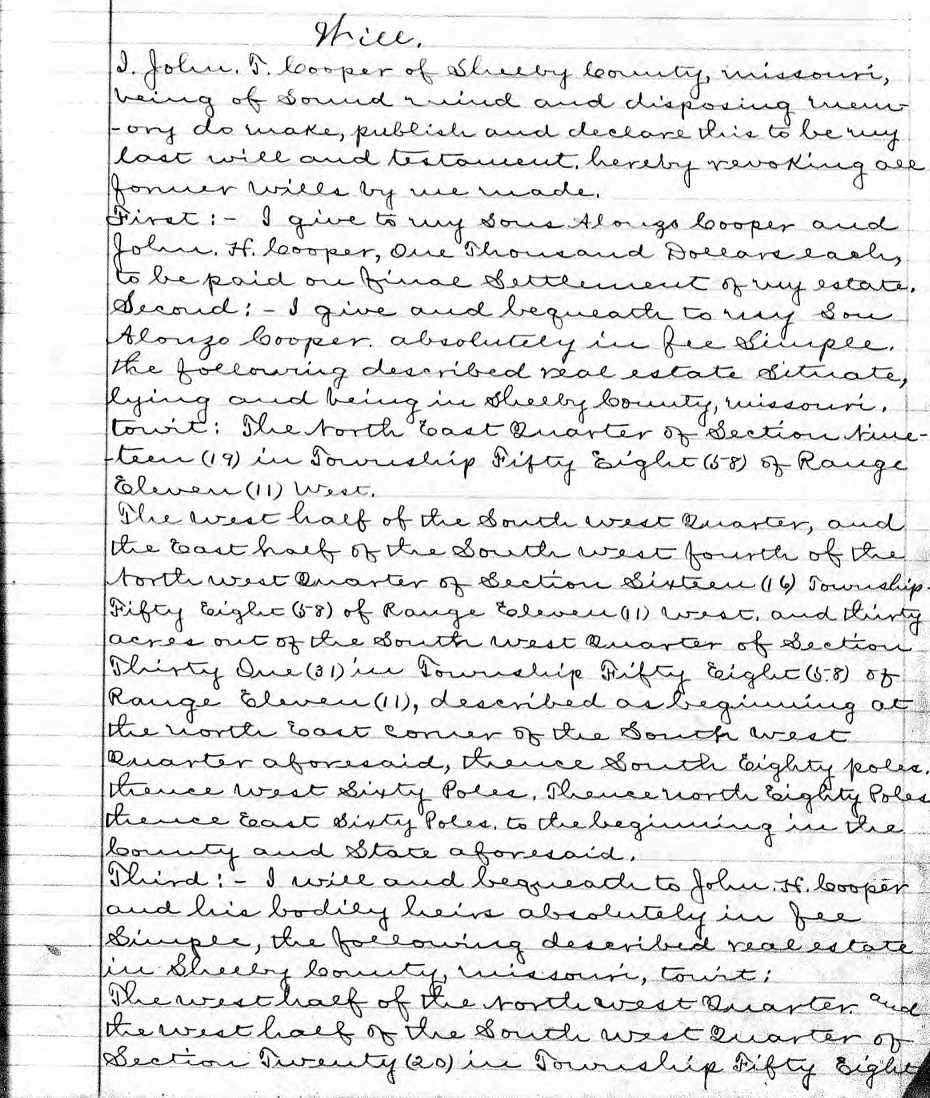 Will.
I. John. T. Cooper of Shelby County, missouri,
being of Sound mind and disposing mem-
-ory do make, publish and declare this to be my
last will and testament. hereby revoking all
former wills by me made.
First:- I give to my Sons Alonzo Cooper and
John. H. Cooper, One Thousand Dollars each,
to be paid on final Settlement of my estate.
Second:- I give and bequeath to my Son
Alonzo Cooper. absolutely in fee Simple.
the following described real estate Situate,
lying and being in Shelby County, missouri.
towit: The North East Quarter of Section Nine-
-teen (19) in Township Fifty Eight (58) of Range
Eleven (11) West.
The west half of the South west Quarter, and
the East half of the South west fourth of the
North west Quarter of Section Sixteen (16) Township
Fifty Eight (58) of Range Eleven (11) west. and thirty
acres out of the South west Quarter of Section
Thirty One (31) in Township Fifty Eight (58) of
Range Eleven (11), described as beginning at
the north East corner of the South west
Quarter aforesaid, thence South Eighty poles.
thence west Sixty Poles. Thence north Eighty Poles
thence East Sixty Poles. to the beginning in the
County and State aforesaid.
Third:- I will and bequeath to John. H. Cooper
and his bodily heirs absolutely in fee
Simple, the following described real estate
in Shelby County, missouri, towit:
The west half of the North west Quarter. and
the west half of the South west Quarter of
Section Twenty (20) in Township Fifty Eight